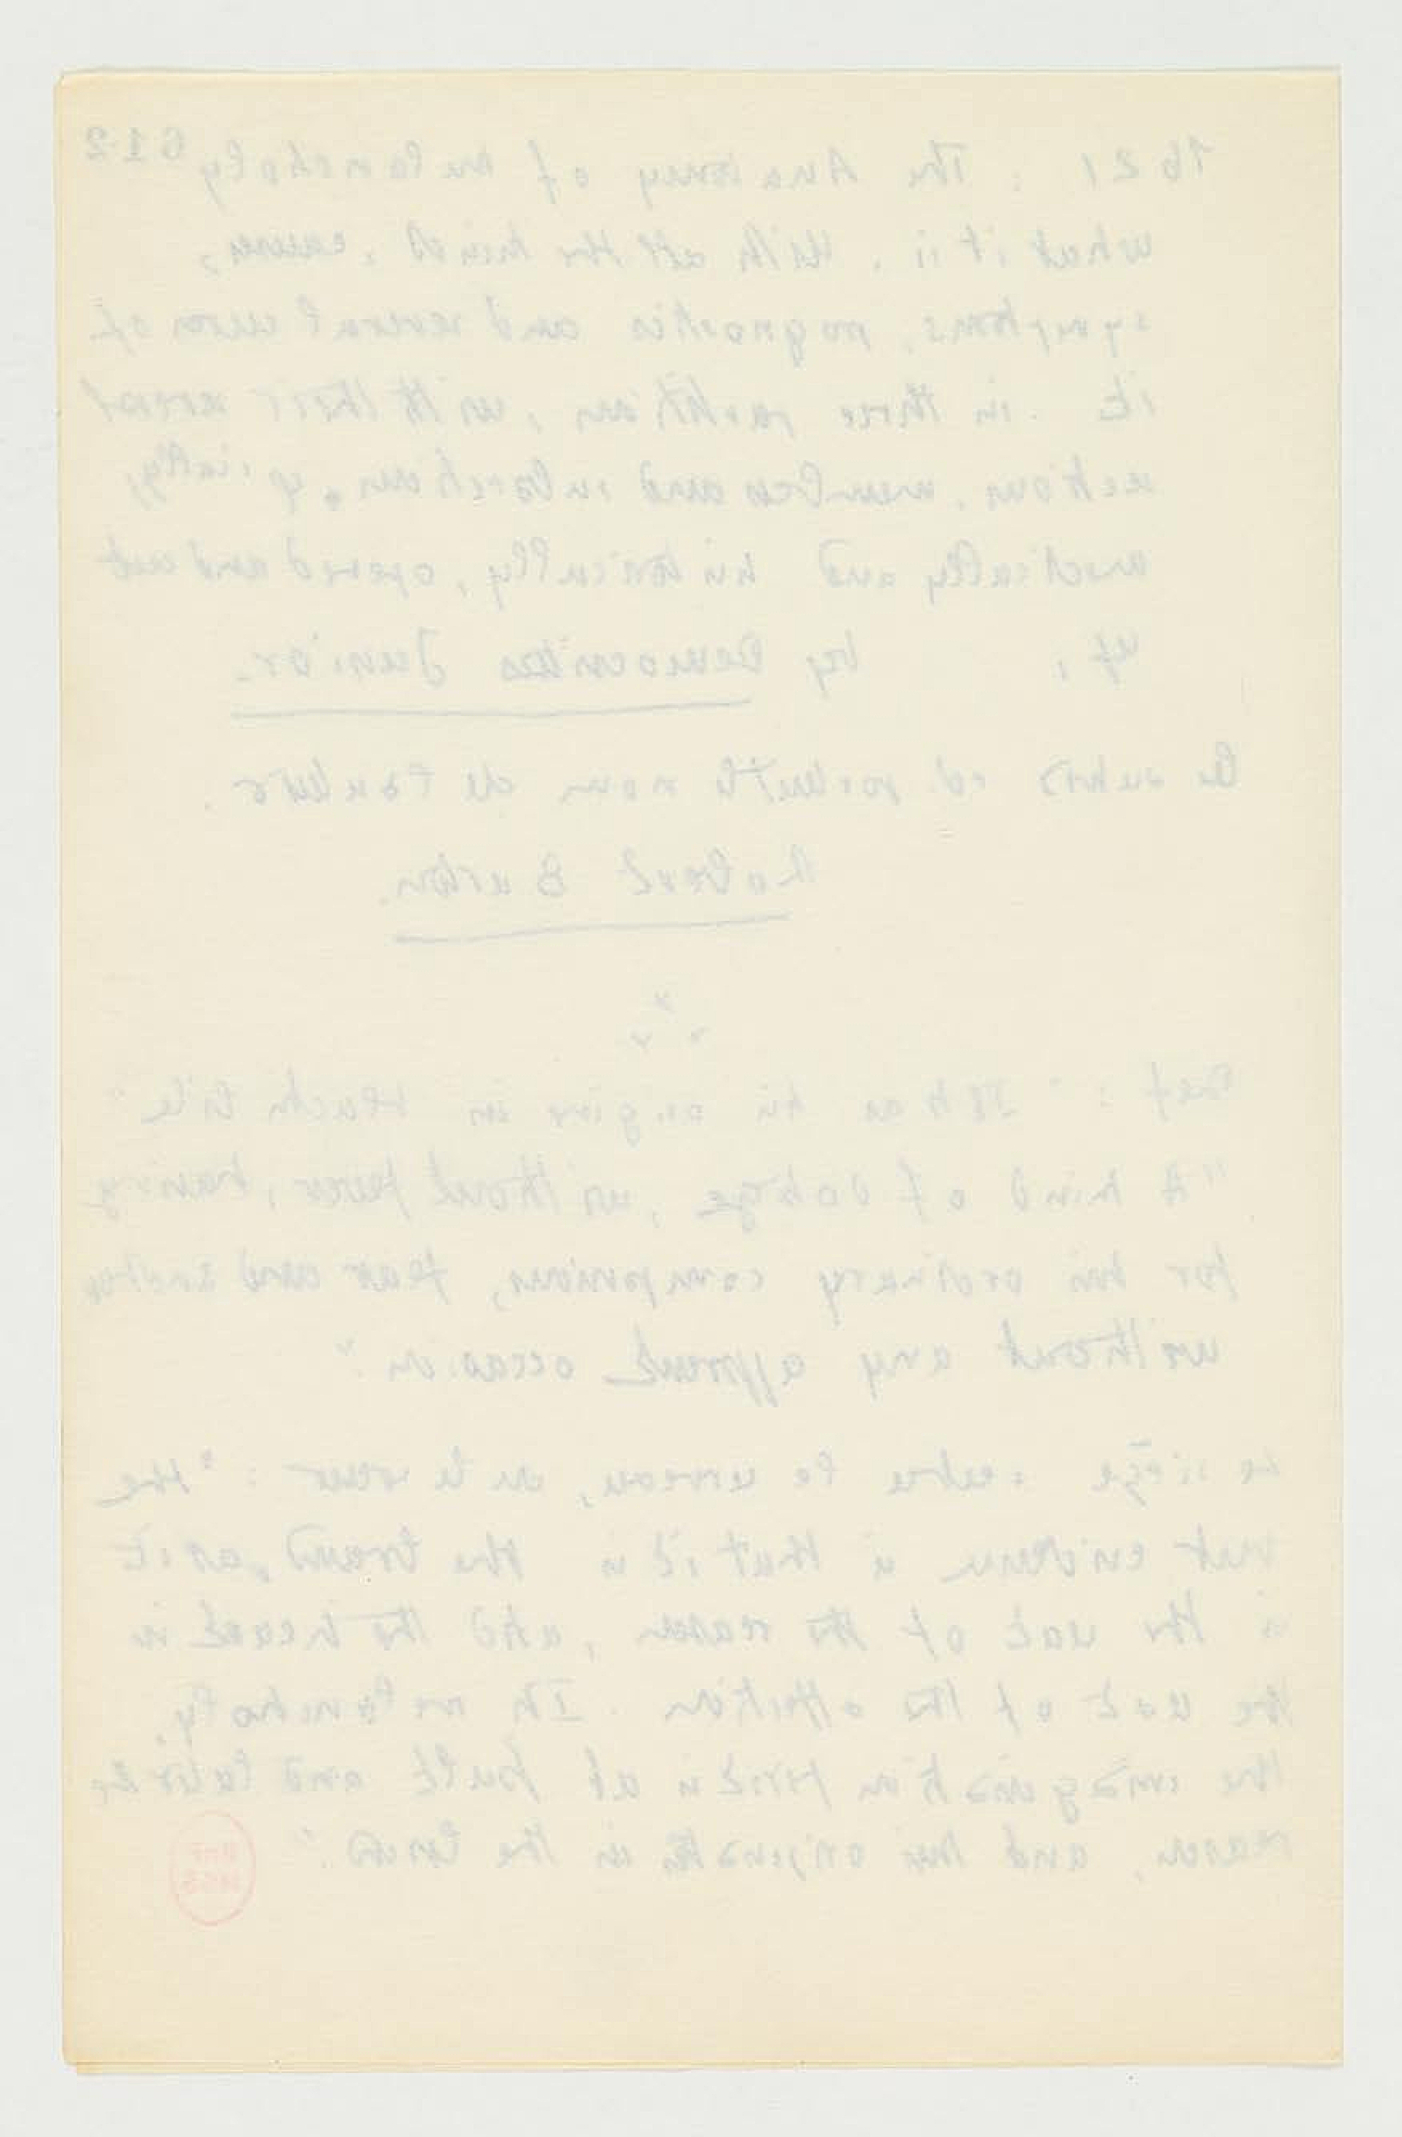 612
1621 : The Anatomy of melancholy
what it is. With all the kinds, causes,
symptoms, prognostics and several cures of
it. in three partitions, with their several
sections, members and subsections,
medically and historically, opened and cut
up, by Democritus Junior.
Le 2nd ed. porte le nom de l'auteur.
Robert Burton.
"A kind of dotage, without fever, having
for his ordinary companions, fear and
without any apparent occasion."
Le siège : entre le cerveau, et le cœur : "the
best evidence is that it is the brain, as it
is the seat of the reason, and the heart is
the seat of the affection. In melancholy,
the imagination first is at fault and later the
reason, and this originates in the brain."
BnF
MSS